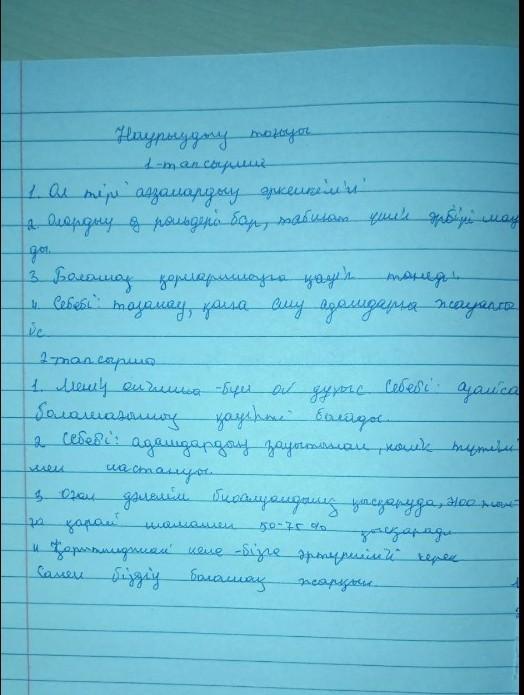 Наурыздың тоңызы
1-тапсырма
1. Ол тірі ағзалардың әркелкілігі
2. Олардың өз рольдері бар, табиғат үшін әрбірі маң
ды.
3. Болашақ ұрпақтарымызға қауіп төнеді.
4. Себебі: тазалау, қоқыс адамдарға жауапты
іс
2-тапсырма
1. Менің ойымша -бұл ой дұрыс. Себебі: азайса
болашағымыз қауіпті болады.
2 Себебі: адамдардың зауытынан, көлік түтіні
мен ластануы.
3 Оған дәлелім биоалуандылық қысқаруда, 2100 жыл
ға қарай шамамен 50-75% қысқарады
4 Қорытындылай келе -бізге әртүрлілігі керек
Сонмен біздің болашақ жарқын.